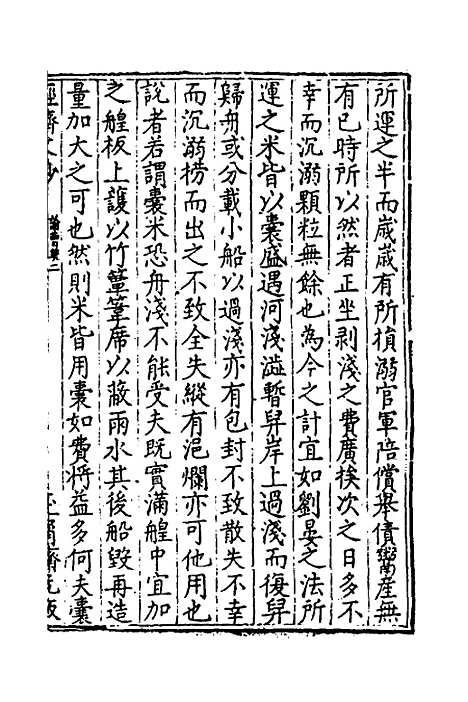 所運之半而歲歲有所損溺官軍陪償舉債鬻產無
有已時所以然者正坐剥淺之費廣挨次之日多不
幸而沉溺顆粒無餘也為今之計宜如劉晏之法所
運之米皆以囊盛遇河淺澁暫舁岸上過淺而復舁
歸舟或分載小船以過淺亦有包封不致散失不幸
而沉溺撈而出之不致全失縱有浥爛亦可他用也
說者若謂囊米恐舟淺不能受夫既實滿艎中宜加
之艎板上護以竹簟葦席以蔽雨水其後船毀再造
量加大之可也然則米皆用囊如費將益多何夫囊
經濟文抄